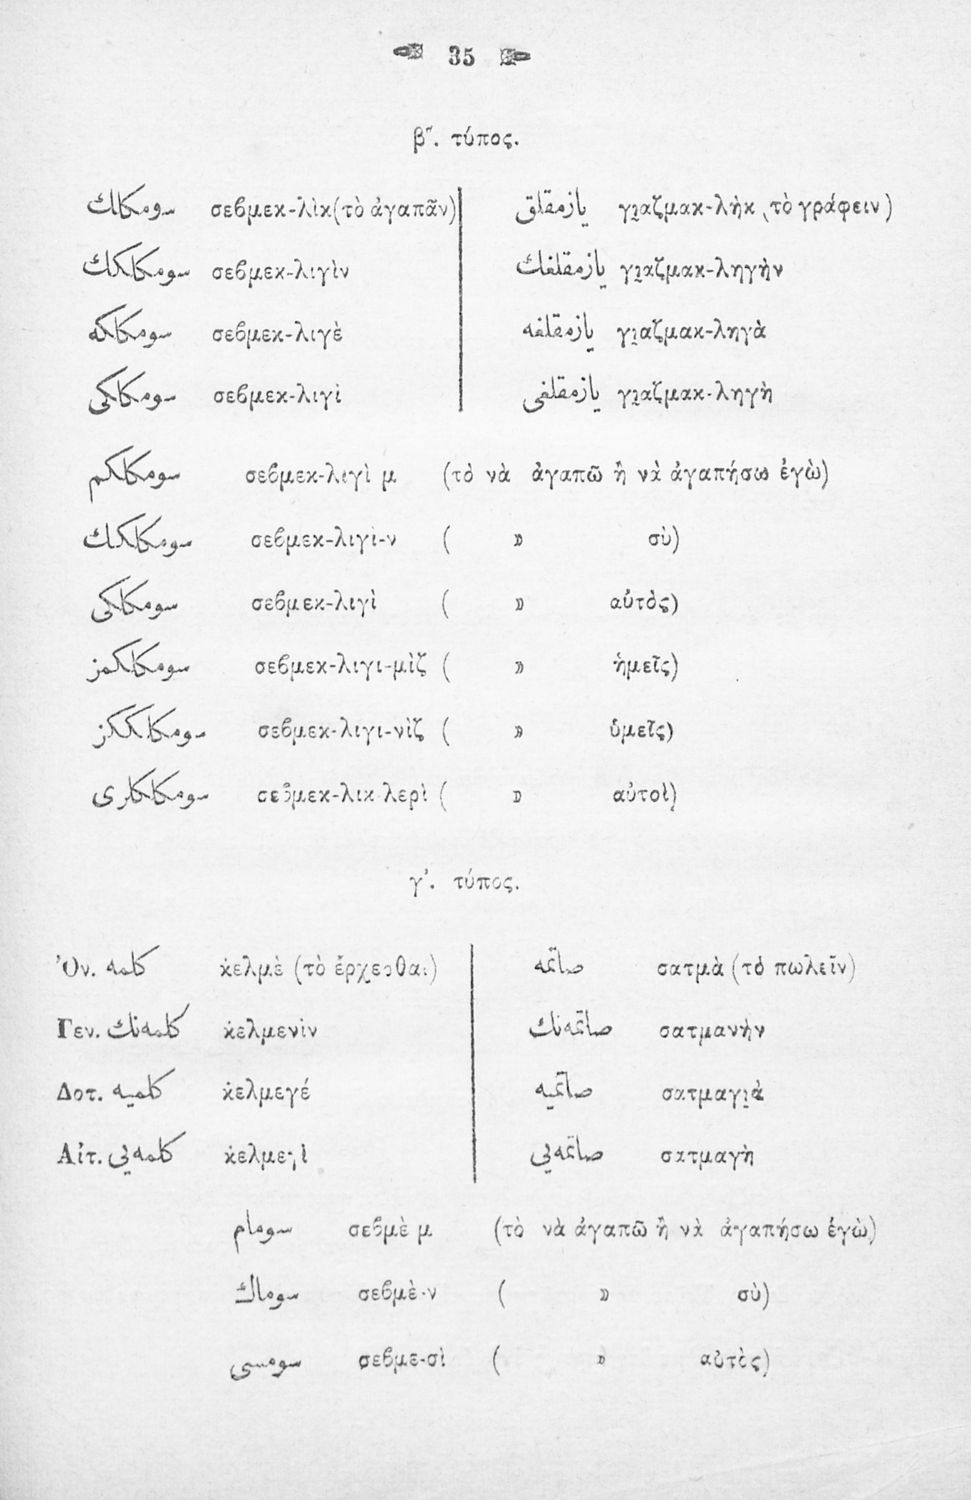 35
β". τύπος.
سومكلك σεβμεκ-λὶκ(τὸ ἀγαπᾶν) يازمقلق γιαζμακ-λὴκ (τὸ γράφειν)
سومكلكك σεβμεκ-λιγὶν يازمقلغك γιαζμακ-ληγὴν
سومكلكه σεβμεκ-λιγὲ يازمقلغه γιαζμακ-ληγὰ
سومكلكى σεβμεκ-λιγὶ يازمقلغى γιαζμακ-ληγὴ
سومكلكم σεβμεκ-λιγὶ μ (τὸ νὰ ἀγαπῶ ἢ νὰ ἀγαπήσω ἐγὼ)
سومكلكك σεβμεκ-λιγὶ-ν ( » σὺ)
سومكلكى σεβμεκ-λιγὶ ( » αὐτὸς)
سومكلكمز σεβμεκ-λιγι-μὶζ ( » ἡμεῖς)
سومكلككز σεβμεκ-λιγι-νὶζ ( » ὑμεῖς)
سومكلكلرى σεβμεκ-λικ λερὶ ( » αὐτοὶ)
γ'. τύπος.
Ὀν. كلمه κελμὲ (τὸ ἔρχεσθαι) صاتمه σατμὰ (τὸ πωλεῖν)
Γεν. كلمه‌نك κελμενὶν صاتمه‌نك σατμανὴν
Δοτ. كلميه κελμεγέ صاتميه σατμαγιὰ
Αἰτ. كلمه‌يى κελμεγὶ صاتمه‌يى σατμαγὴ
سومام σεβμὲ μ (τὸ νὰ ἀγαπῶ ἢ νὰ ἀγαπήσω ἐγὼ)
سوماك σεβμὲ-ν ( » σὺ)
سومسى σεβμε-σὶ ( » αὐτὸς)